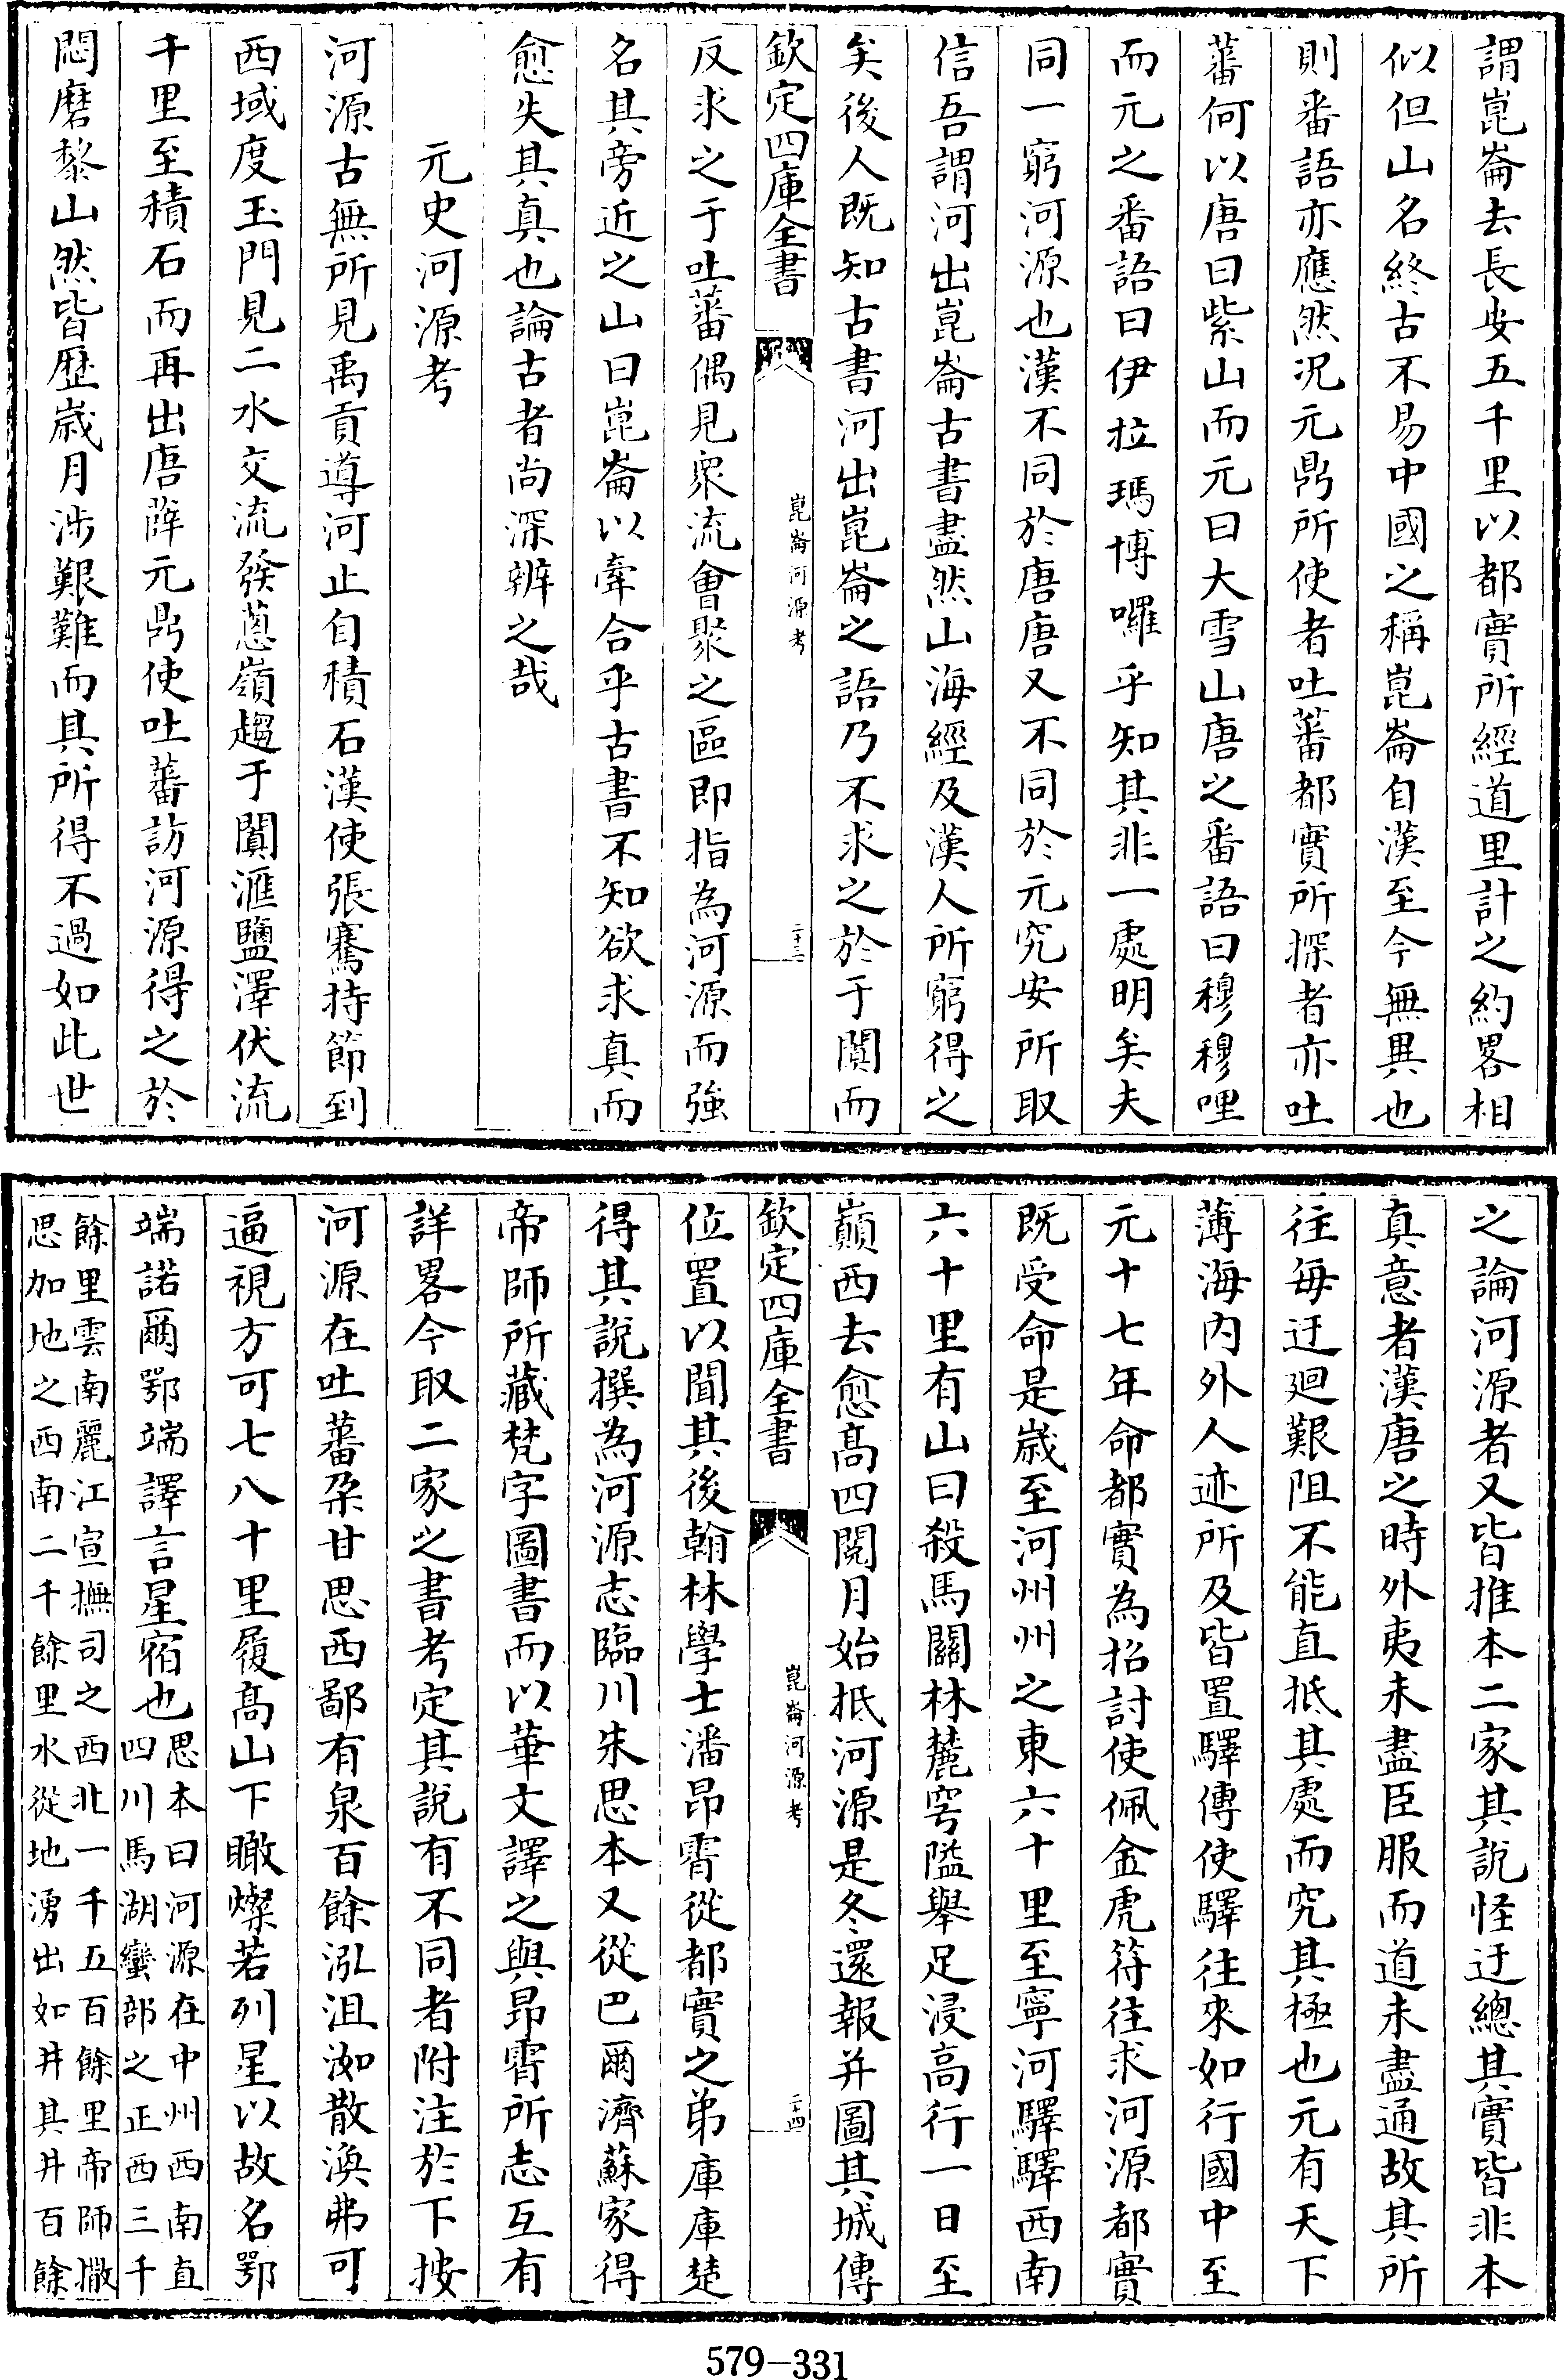 謂崑崙去長安五千里以都實所經道里計之約畧相
似但山名終古不易中國之稱崑崙自漢至今無異也
則番語亦應然況元鼎所使者吐蕃都實所探者亦吐
蕃何以唐曰紫山而元曰大雪山唐之番語曰穆穆哩
而元之番語曰伊拉瑪博囉乎知其非一處明矣夫
同一窮河源也漢不同於唐唐又不同於元究安所取
信吾謂河出崑崙古書盡然山海經及漢人所窮得之
矣後人既知古書河出崑崙之語乃不求之於于闐而
欽定四庫全書
崑崙河源考
二十三
反求之于吐蕃偶見衆流會聚之區即指為河源而強
名其旁近之山曰崑崙以牽合乎古書不知欲求真而
愈失其真也論古者尚深辨之哉
元史河源考
河源古無所見禹貢導河止自積石漢使張騫持節到
西域度玉門見二水交流發蔥嶺趨于闐滙鹽澤伏流
千里至積石而再出唐薛元鼎使吐蕃訪河源得之於
悶磨黎山然皆歷歲月涉艱難而其所得不過如此世
之論河源者又皆推本二家其說怪迂總其實皆非本
真意者漢唐之時外夷未盡臣服而道未盡通故其所
往每迂廻艱阻不能直抵其處而究其極也元有天下
薄海內外人迹所及皆置驛傳使驛往來如行國中至
元十七年命都實為招討使佩金虎符往求河源都實
既受命是歲至河州州之東六十里至寧河驛驛西南
六十里有山曰殺馬關林麓穹隘舉足浸高行一日至
巔西去愈高四閱月始抵河源是冬還報并圖其城傳
欽定四庫全書
崑崙河源考
二十四
位置以聞其後翰林學士潘昂霄從都實之弟庫庫楚
得其說撰為河源志臨川朱思本又從巴爾濟蘇家得
帝師所藏梵字圖書而以華文譯之與昂霄所志互有
詳畧今取二家之書考定其說有不同者附注於下按
河源在吐蕃朶甘思西鄙有泉百餘泓沮洳散渙弗可
逼視方可七八十里履高山下瞰燦若列星以故名鄂
端諾爾鄂端譯言星宿也思本曰河源在中州西南直
四川馬湖蠻部之正西三千
餘里雲南麗江宣撫司之西北一千五百餘里帝師撒
思加地之西南二千餘里水從地湧出如井其井百餘
579-331